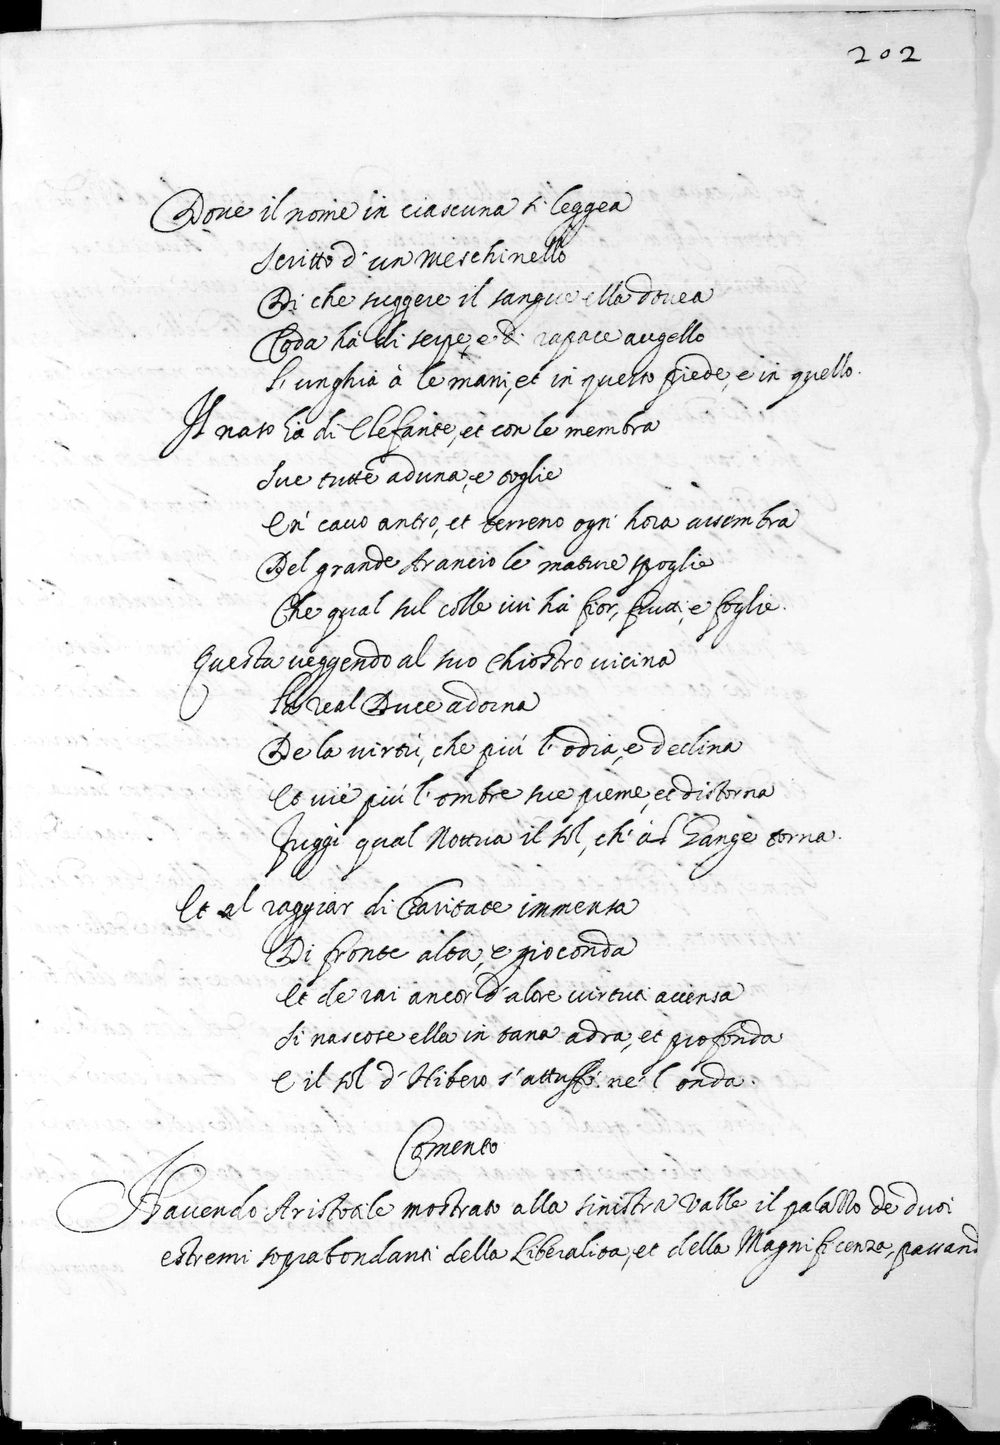 202
Doue il nome in ciascuna si leggea
Scritto d'un meschinello
Di che suggere il sangue ella douea
Coda hà di serpe, e di rapace augello
L'unghia à le mani, et in questo piede, e in quello.
Il naso hà di Elefante, et con le membra
Sue tutte aduna, e toglie
En cauo antro, et terreno ogn' hora assembra
Del grande Arancio le mature spoglie
Che qual sul colle iui hà fior, frutti, e foglie.
Questa ueggendo al suo Chiostro uicina
La real Duce adorna
De la uirtù, che più l'odia, e declina
Et uie più l'ombre sue preme, et distorna
Fuggì qual Nottua il sol, ch'al Gange torna.
Et al raggiar di Caritate immensa
Di fronte alta, e gioconda
Et de rai ancor d'altre uirtuti accensa
Si nascose ella in tana adra, et profonda
E il sol d'Hibero s'attuffò ne l'onda.
Comento
Hauendo Aristotile mostrato alla sinistra Valle il palazzo de duoi
estremi soprabondanti della Liberalità, et della Magnificenza, passand